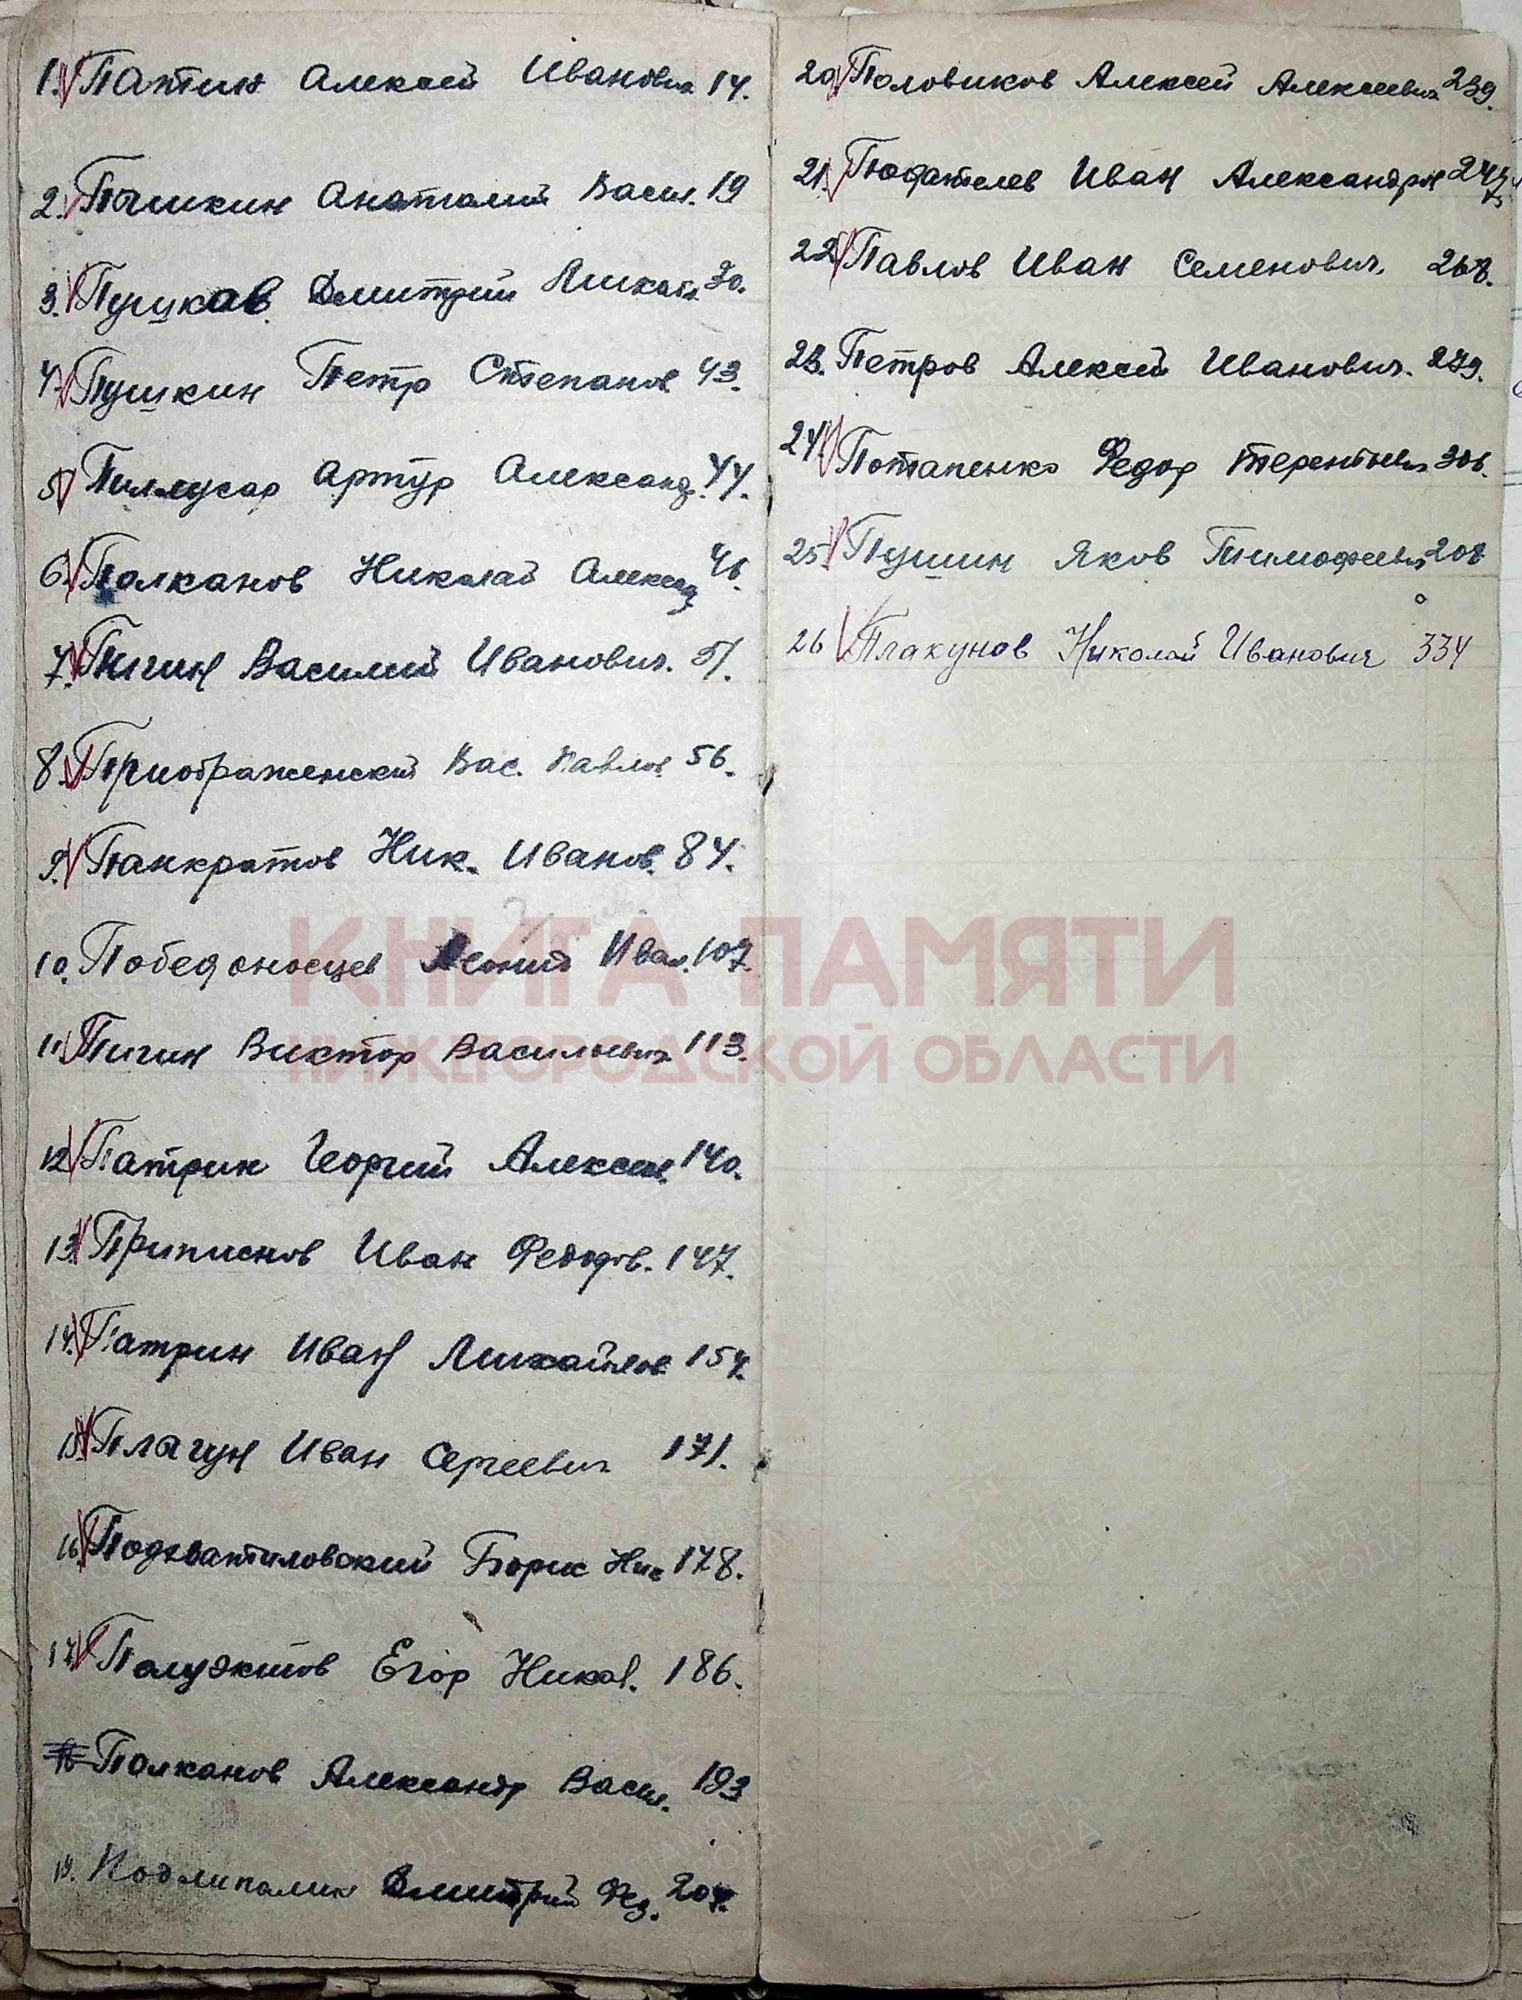 1. Патин Алексей Иванович 14.
2. Пашкин Анатолий Васил. 19
3. Пучков Дмитрий Михайл. 30.
4. Пушкин Петр Степанов 43.
5. Артур Александ. 44.
6. Полканов Николай Алексад 46.
7. Пигин Василий Иванович. 51.
8. Приображенский Вас. Павлов 56.
9. Панкратов Ник. Иванов. 84.
10. Победоносцев Леонид Иван. 107.
11. Пигин Виктор Васильевич 113.
12. Патрин Георгий Алексеев. 140.
13. Приписнов Иван Федоров. 147.
14. Патрин Иван Михайлов 154.
15. Плагун Иван Сергеевич 171.
16. Подхватиловский Борис Ник 178.
17. Егор Никол. 186.
18 Полканов Александр Васил. 193
19. Подлипалин Дмитрий Фед. 204.
20. Половиков Алексей Алексеевич 239.
21. Иван Александров
22. Павлов Иван Семенович. 268.
23. Петров Алексей Иванович. 279.
24. Потапенко Федор Терентьевич 306.
25. Пушин Яков Тимофеевич 208
26 Плакунов Николай Иванович 334
КНИГА ПАМЯТИ
НИЖЕГОРОДСКОЙ ОБЛАСТИ